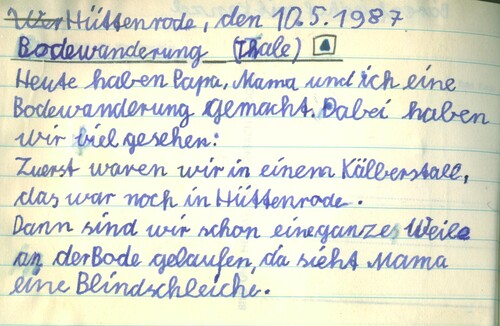 Wer Hüttenrode, den 10.5.1987
Bodewanderung (Thale)
Heute haben Papa, Mama und ich eine
Bodewanderung gemacht. Dabei haben
wir viel gesehen:
Zuerst waren wir in einem Kälberstall,
das war noch in Hüttenrode.
Dann sind wir schon eine ganze Weile
an der Bode gelaufen, da sieht Mama
eine Blindschleiche.